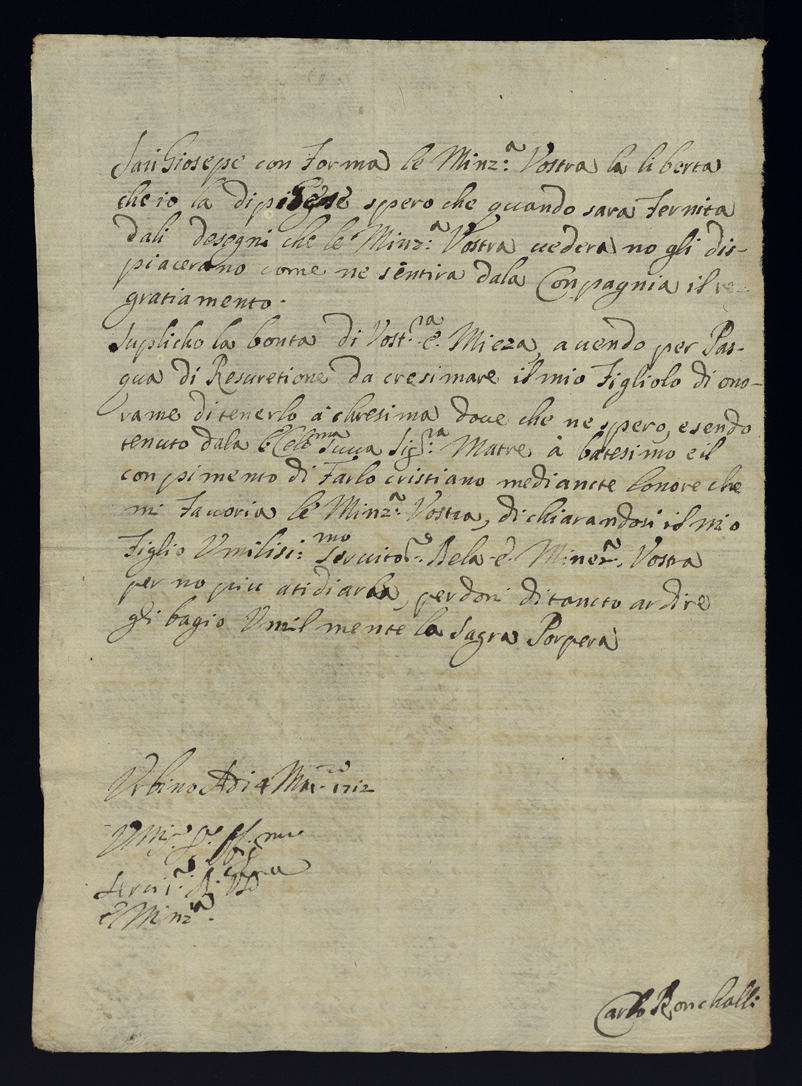 San Giosepe con Forma le Minz.a Vostra la liberta
che io la dipigese spero che quando sara Fernita
dali desegni che le Minz.a Vostra uedera no gli dis-
piacerano come ne sentira dala Conpagnia il re-
gratiamento.
Suplicho la bonta di Vost.ra e. Mieza, auendo per Pas-
qua di Resuretione da cresimare il mio Figliolo di ono-
rame di tenerlo a chresima doue che ne spero, esendo
tenuto dala Sig.ra Matre à batesimo e il
conpimento di Farlo cristiano mediancte lonore che
mi Faccoria le Minz.a Vostra, dichiarandosi il mio
Figlio Vmilisi:mo Seruito.e Dela e. Minez.a Vostra
per no piu atidiarla, perdoni di tancto ardire
gli bagio Vmilmente la Sagra Porpera
Vrbino Adi 4 Mar.zo 1712
Serui.e
e Minz.a
Carlo Roncholli